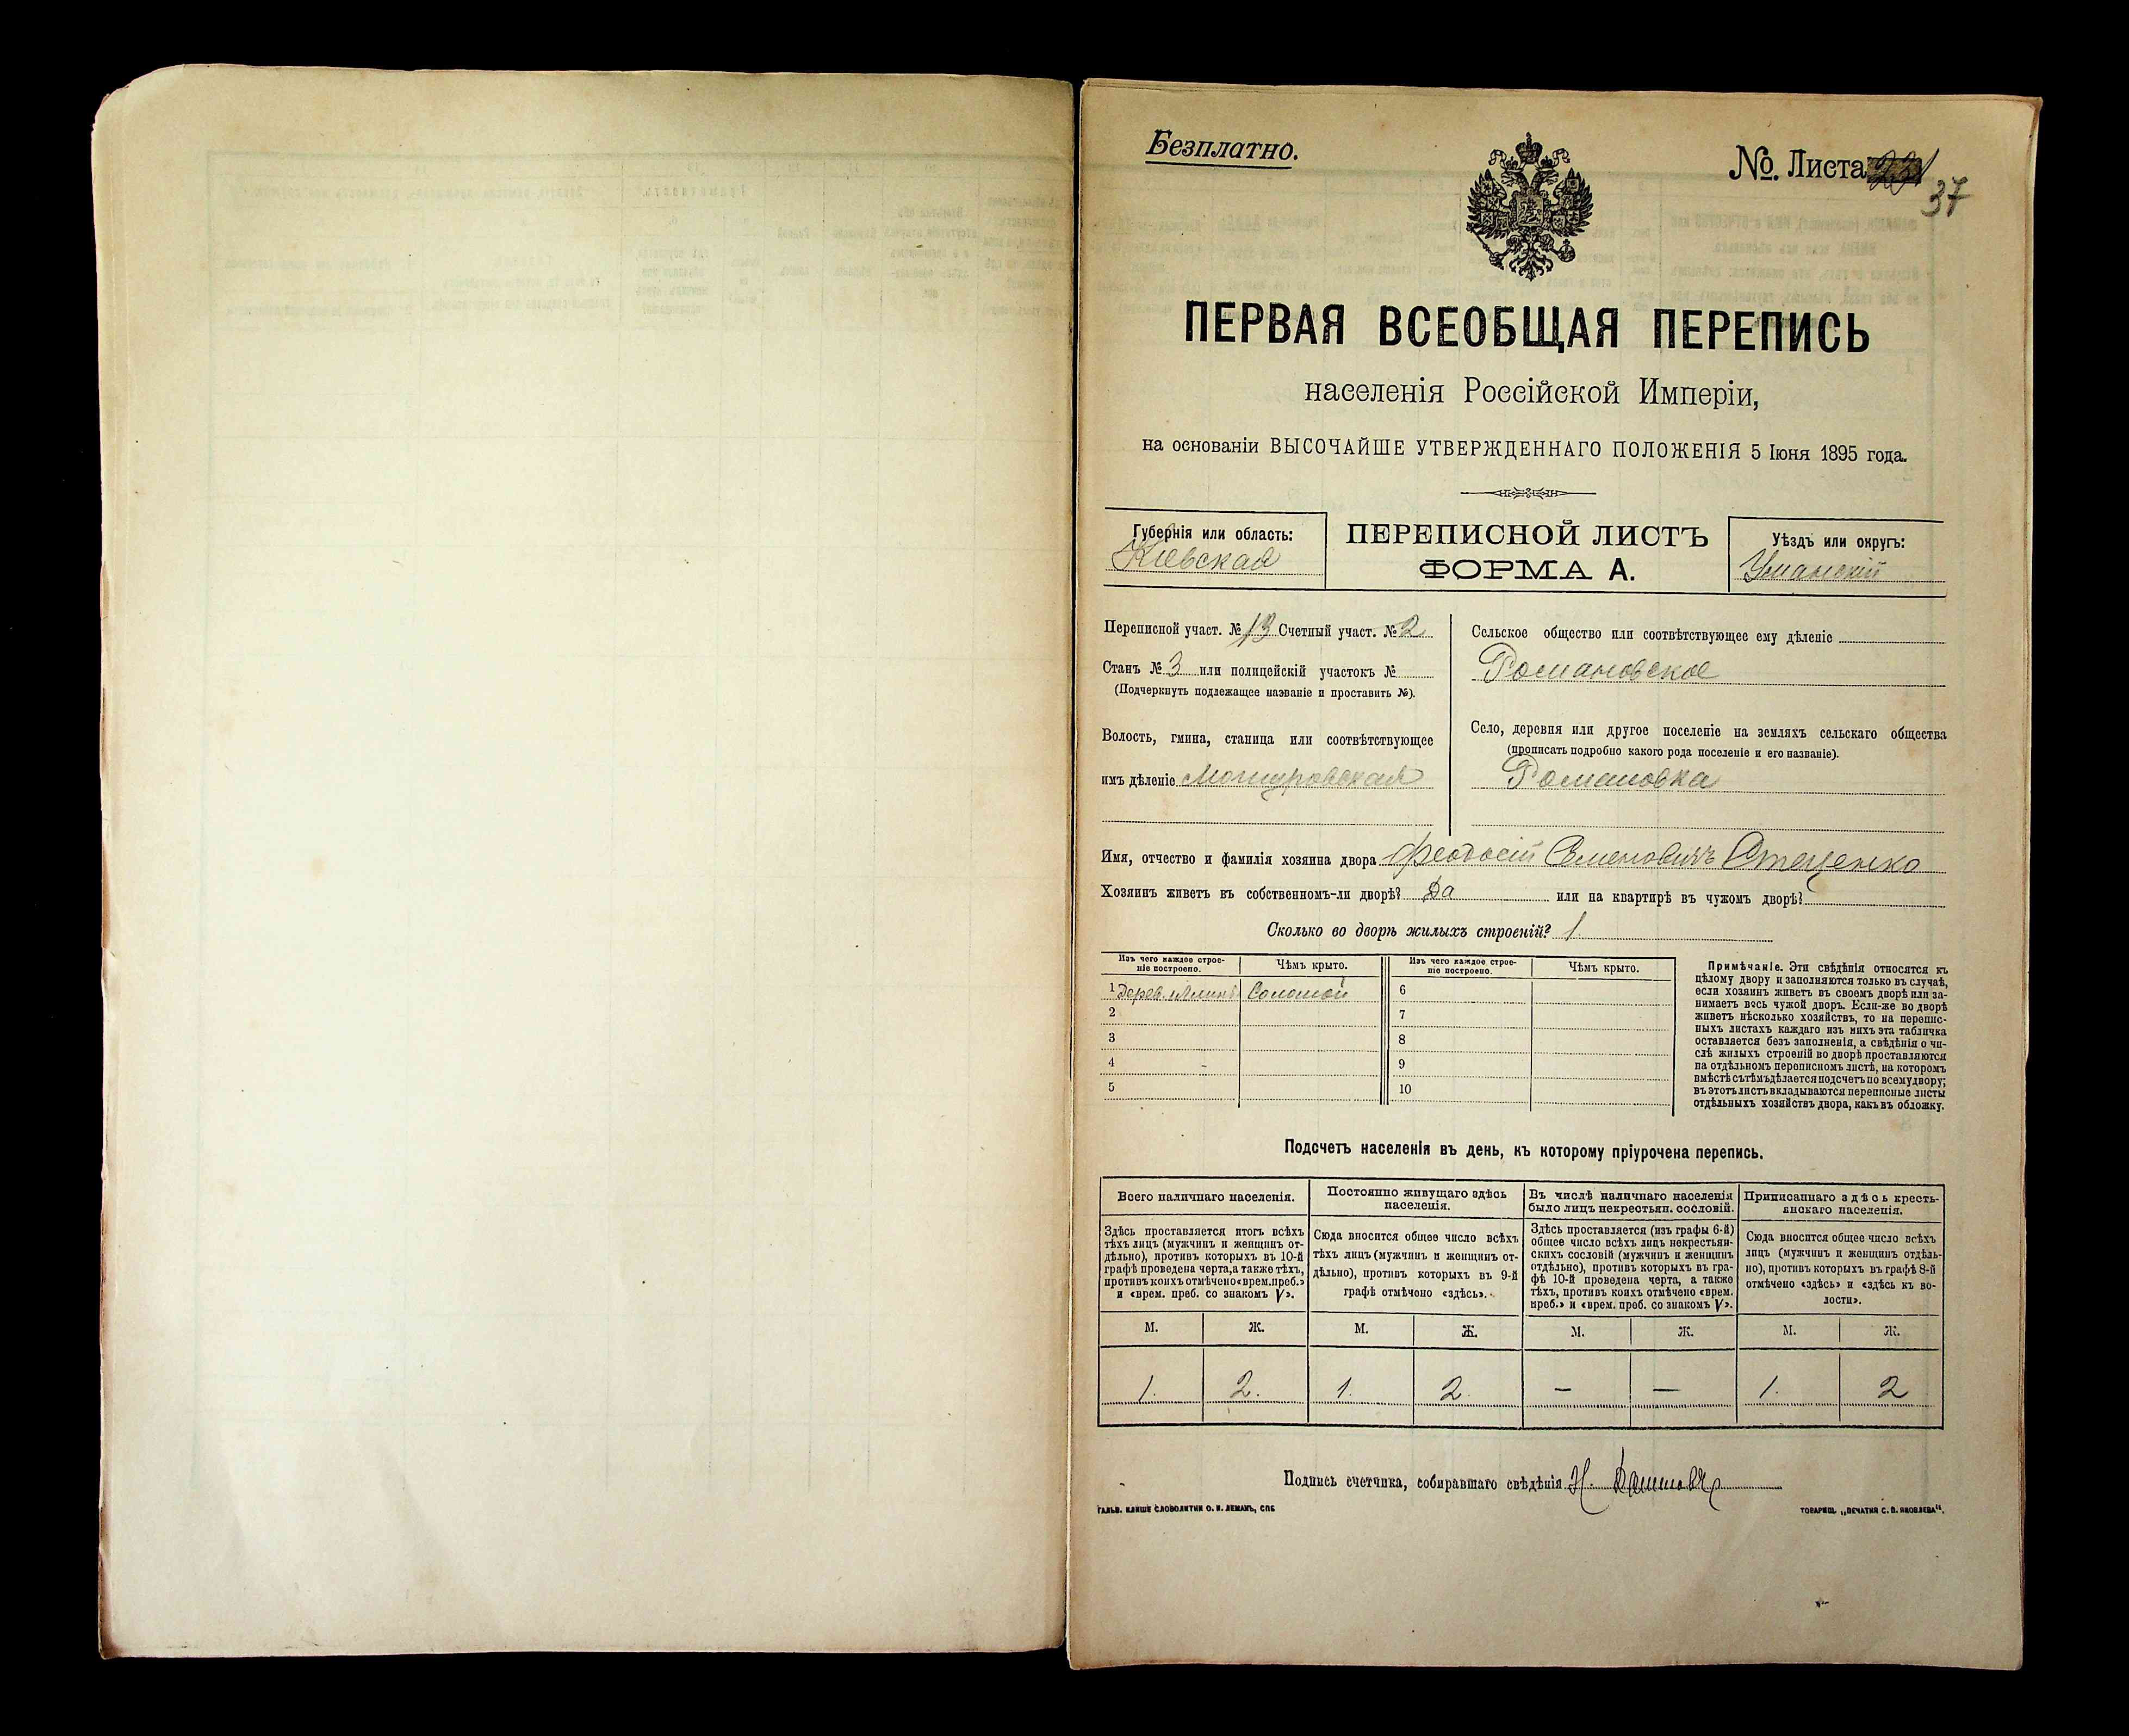 Безплатно.
№. Листа
37
ПЕРВАЯ ВСЕОБЩАЯ ПЕРЕПИСЬ
населенія Россійской Имперіи,
на основаніи ВЫСОЧАЙШЕ УТВЕРЖДЕННАГО ПОЛОЖЕНІЯ 5 Іюня 1895 года.
Губернія или область:
Кіевская
ПЕРЕПИСНОЙ ЛИСТЪ
ФОРМА А.
Уѣздъ или округъ:
Уманскій
Переписной участ. № 13 Счетный участ. № 2
Станъ № 3 или полицейскій участокъ №
(Подчеркнуть подлежащее названіе и проставить №).
Волость, гмина, станица или соотвѣтствующее
имъ дѣленіе Мошуровская
Сельское общество или соотвѣтствующее ему дѣленіе
Романовское
Село, деревня или другое поселеніе на земляхъ сельскаго общества
(прописать подробно какого рода поселеніе и его названіе).
Романовка
Имя, отчество и фамилія хозяина двора Феодосій Семеновичъ Стеценко
Хозяинъ живетъ въ собственномъ-ли дворѣ? Да или на квартирѣ въ чужомъ дворѣ?
Сколько во дворѣ жилыхъ строеній? 1
Изъ чего каждое строе-
ніе построено.
Чѣмъ крыто.
Изъ чего каждое строе-
ніе построено.
Чѣмъ крыто.
1 Дерев. Соломой
6
2
7
3
8
4
9
5
10
Примѣчаніе. Эти свѣдѣнія относятся къ
цѣлому двору и заполняются только въ случаѣ,
если хозяинъ живетъ въ своемъ дворѣ или за-
нимаетъ весь чужой дворъ. Если-же во дворѣ
живетъ нѣсколько хозяйствъ, то на перепис-
ныхъ листахъ каждаго изъ нихъ эта табличка
оставляется безъ заполненія, а свѣдѣнія о чи-
слѣ жилыхъ строеній во дворѣ проставляются
на отдѣльномъ переписномъ листѣ, на которомъ
вмѣстѣ съ тѣмъ дѣлается подсчетъ по всему двору;
въ этотъ листъ вкладываются переписные листы
отдѣльныхъ хозяйствъ двора, какъ въ обложку.
Подсчетъ населенія въ день, къ которому пріурочена перепись.
Всего наличнаго населенія.
Здѣсь проставляется итогъ всѣхъ
тѣхъ лицъ (мужчинъ и женщинъ от-
дѣльно), противъ которыхъ въ 10-й
графѣ проведена черта, а также тѣхъ,
противъ коихъ отмѣчено «врем. преб.»
и «врем. преб. со знакомъ V».
Постоянно живущаго здѣсь
населенія.
Сюда вносится общее число всѣхъ
тѣхъ лицъ (мужчинъ и женщинъ от-
дѣльно), противъ которыхъ въ 9-й
графѣ отмѣчено «здѣсь».
Въ числѣ наличнаго населенія
было лицъ некрестьян. сословій.
Здѣсь проставляется (изъ графы 6-й)
общее число всѣхъ лицъ некрестьян-
скихъ сословій (мужчинъ и женщинъ
отдѣльно), противъ которыхъ въ гра-
фѣ 10-й проведена черта, а также
тѣхъ, противъ коихъ отмѣчено «врем.
преб.» и «врем. преб. со знакомъ V».
Приписаннаго здѣсь кресть-
янскаго населенія.
Сюда вносится общее число всѣхъ
лицъ (мужчинъ и женщинъ отдѣль-
но), противъ которыхъ въ графѣ 8-й
отмѣчено «здѣсь» и «здѣсь къ во-
лости».
М. Ж. М. Ж. М. Ж. М. Ж.
1. 2. 1. 2. — — 1. 2
Подпись счетчика, собиравшаго свѣдѣнія Н.
ГАЛЬВ. КЛИШЕ СЛОВОЛИТНИ О. И. ЛЕМАНЪ, СПБ
ТОВАРИЩ. „ПЕЧАТНЯ С. П. ЯКОВЛЕВА“.